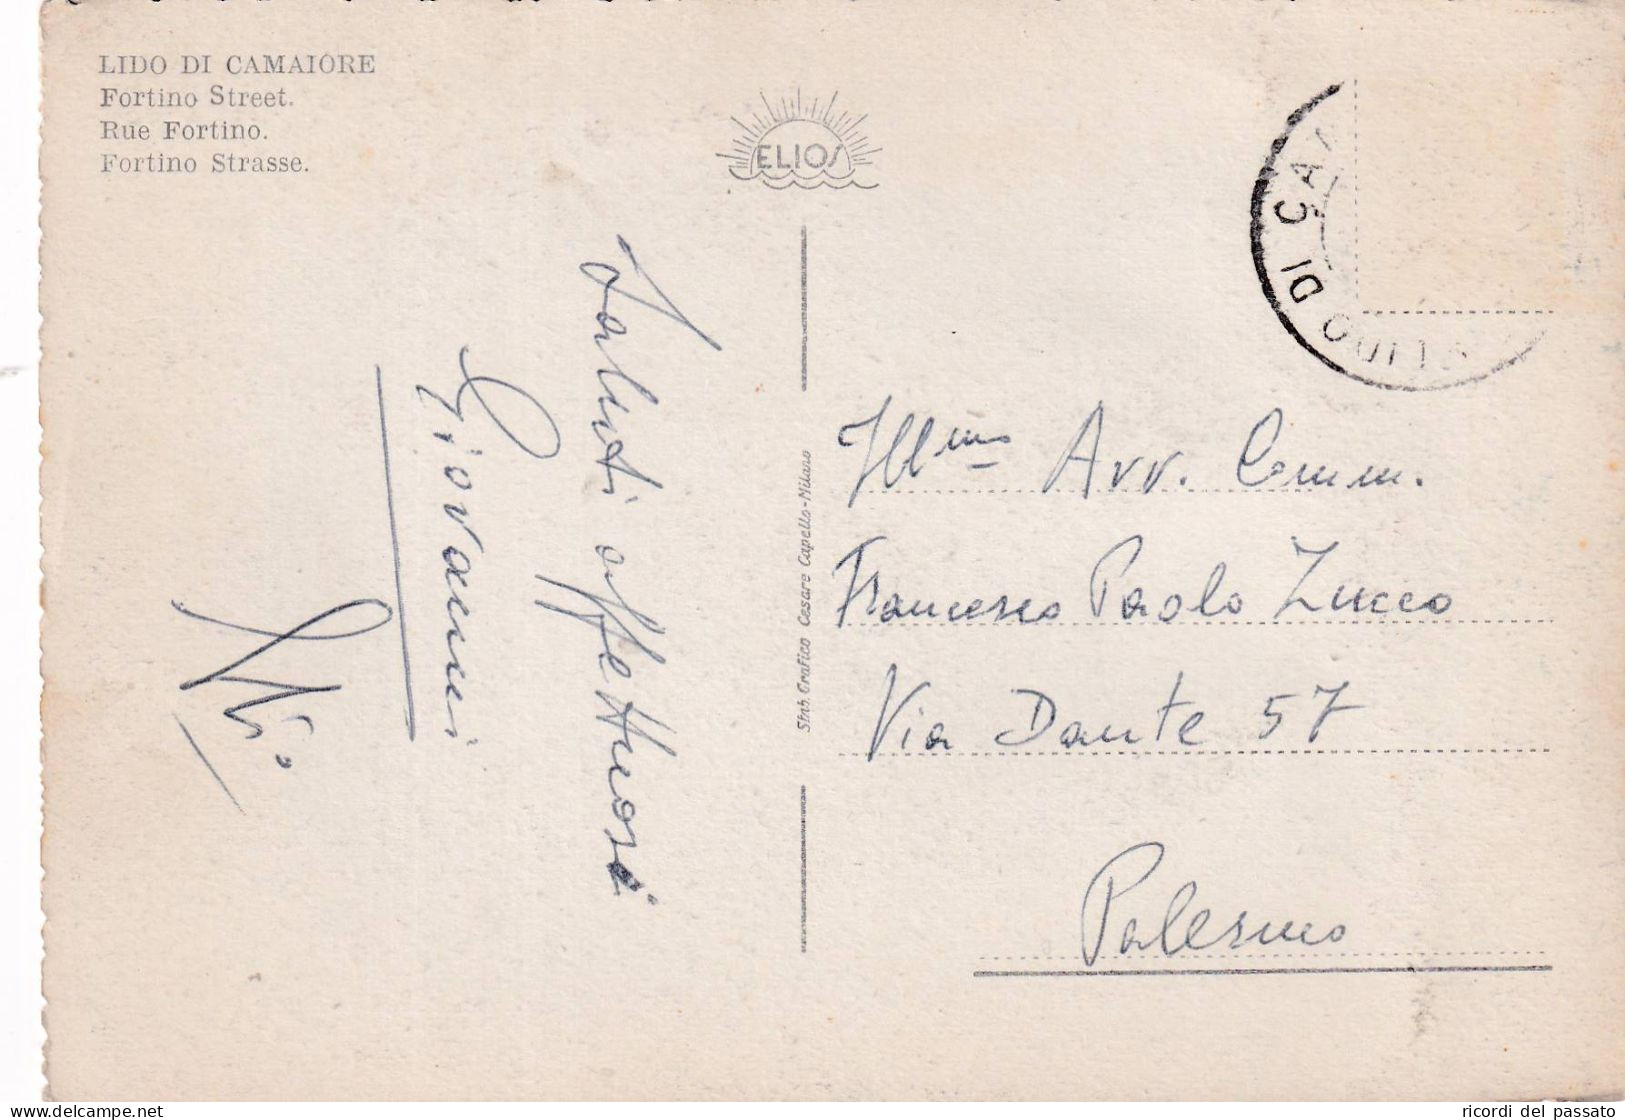 LIDO DI CAMAIORE
Fortino Street.
Rue Fortino.
Fortino Strasse.
ELIOS
LIDO DI CA
Saluti affettuosi
Giovanni
Stab. Grafico Cesare Capello - Milano
Ill.mo Avv. Comm.
Francesco Paolo Zucco
Via Dante 57
Palermo
delcampe.net
ricordi del passato